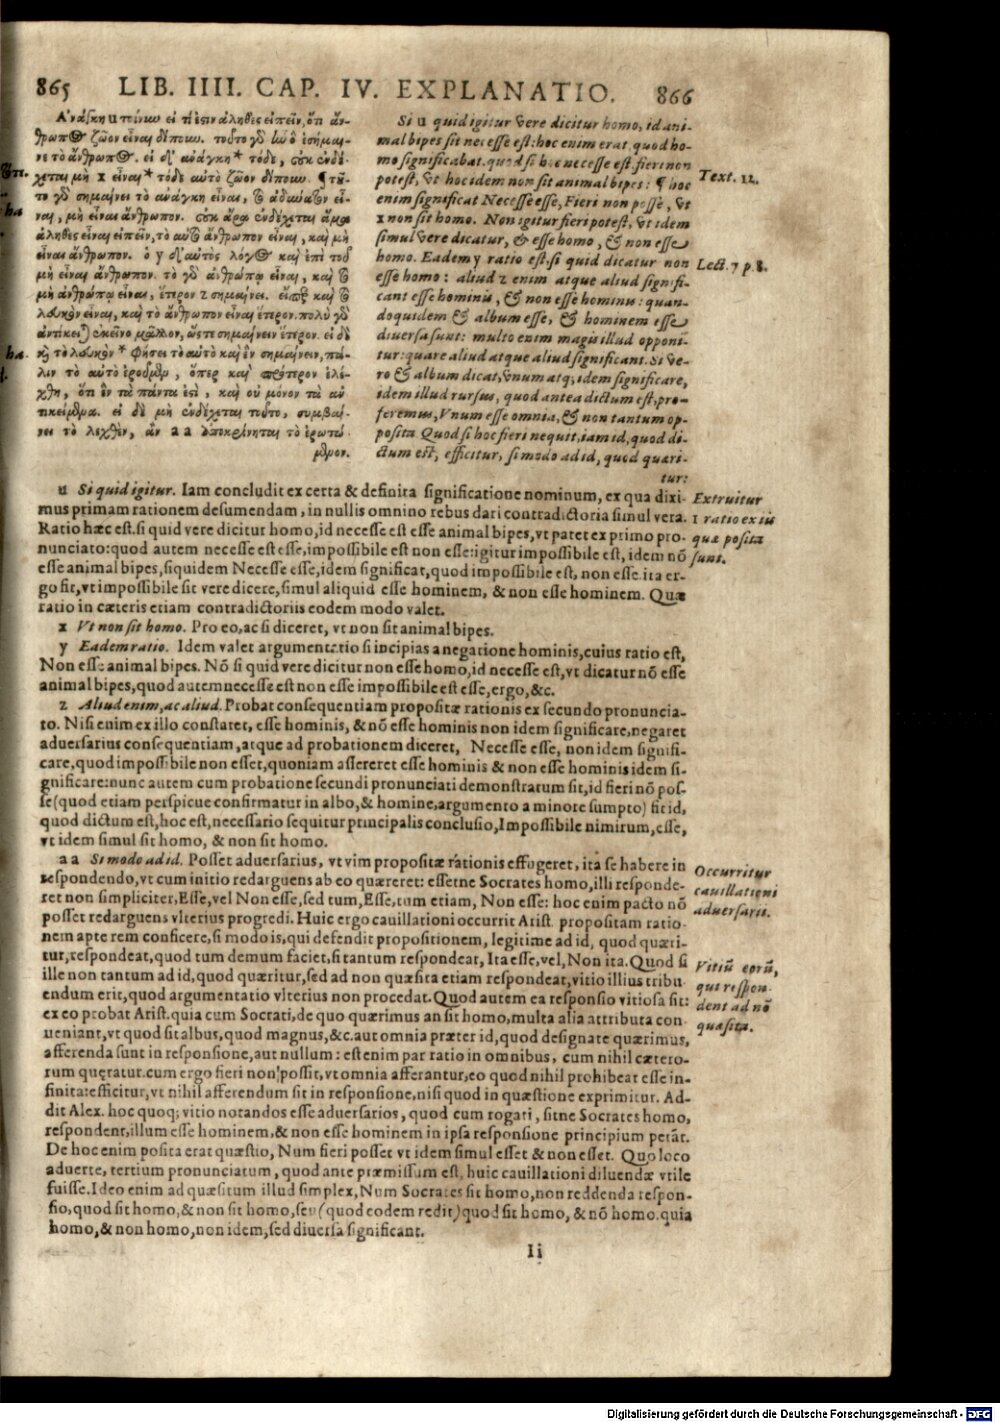 865 LIB. IIII. CAP. IV. EXPLANATIO. 866
Ἀνάγκη u τοίνυν εἴ τί ἐστιν ἀληθὲς εἰπεῖν, ὅτι ἄν-
θρωπος ζῶον εἶναι δίπουν. τοῦτο γὰρ ἦν ὃ ἐσήμαι-
νε τὸ ἄνθρωπος. εἰ δ' ἀνάγκη * τόδε, οὐκ ἐνδέ-
χεται μὴ x εἶναι * τόδε αὐτὸ ζῶον δίπουν. ¶ τοῦ-
το γὰρ σημαίνει τὸ ἀνάγκη εἶναι, τὸ ἀδύνατον εἶ-
ναι, μὴ εἶναι ἄνθρωπον. οὐκ ἄρα ἐνδέχεται ἅμα
ἀληθὲς εἶναι εἰπεῖν, τὸ αὐτὸ ἄνθρωπον εἶναι, καὶ μὴ
εἶναι ἄνθρωπον. ὁ y δ' αὐτὸς λόγος καὶ ἐπὶ τοῦ
μὴ εἶναι ἄνθρωπον. τὸ γὰρ ἀνθρώπῳ εἶναι, καὶ τὸ
μὴ ἀνθρώπῳ εἶναι, ἕτερον z σημαίνει. εἴπερ καὶ τὸ
λευκὸν εἶναι, καὶ τὸ ἄνθρωπον εἶναι ἕτερον. πολὺ γὰρ
ἀντίκειται ἐκεῖνο μᾶλλον, ὥστε σημαίνειν ἕτερον. εἰ δὲ
καὶ τὸ λευκὸν * φήσει τὸ αὐτὸ καὶ ἓν σημαίνειν, πά-
λιν τὸ αὐτὸ ἐροῦμεν, ὅπερ καὶ πρότερον ἐλέ-
χθη, ὅτι ἓν τὰ πάντα ἐστὶ, καὶ οὐ μόνον τὰ ἀν
τικείμενα. εἰ δὲ μὴ ἐνδέχεται τοῦτο, συμβαί-
νει τὸ λεχθὲν, ἂν aa ἀποκρίνηται τὸ ἐρωτώ-
μενον.
Si u quid igitur vere dicitur homo, id ani-
mal bipes sit necesse est: hoc enim erat, quod ho-
mo significabat. quod si hoc necesse est, fieri non
potest, vt hoc idem non sit animal bipes: ¶ hoc
enim significat Necesse esse, Fieri non posse, vt
x non sit homo. Non igitur fieri potest, vt idem
simul vere dicatur, & esse homo, & non esse
homo. Eadem y ratio est, si quid dicatur non
esse homo: aliud z enim atque aliud signifi-
cant esse hominis, & non esse hominis: quan-
doquidem & album esse, & hominem esse
diuersa sunt: multo enim magis illud opponi-
tur: quare aliud atque aliud significant. Si ve-
ro & album dicat, vnum atq; idem significare,
idem illud rursus, quod antea dictum est, pro-
feremus, Vnum esse omnia, & non tantum op-
posita. Quod si hoc fieri nequit, iam id, quod di-
ctum est, efficitur, si modo ad id, quod quæri-
tur:
Text. 12.
Lect. 7 p. 8.
u Si quid igitur. Iam concludit ex certa & definita significatione nominum, ex qua dixi-
mus primam rationem desumendam, in nullis omnino rebus dari contradictoria simul vera.
Ratio hæc est. si quid vere dicitur homo, id necesse est esse animal bipes, vt patet ex primo pro-
nunciato: quod autem necesse est esse, impossibile est non esse: igitur impossibile est, idem nō
esse animal bipes, siquidem Necesse esse, idem significat, quod impossibile est, non esse. ita er-
go fit, vt impossibile sit vere dicere, simul aliquid esse hominem, & non esse hominem. Quæ
ratio in cæteris etiam contradictoriis eodem modo valet.
Extruitur
1 ratio ex iis
quæ posita
sunt.
x Vt non sit homo. Pro eo, ac si diceret, vt non sit animal bipes.
y Eadem ratio. Idem valet argumentatio si incipias a negatione hominis, cuius ratio est,
Non esse animal bipes. Nō si quid vere dicitur non esse homo, id necesse est, vt dicatur nō esse
animal bipes, quod autem necesse est non esse impossibile est esse, ergo, &c.
z Aliud enim, ac aliud. Probat consequentiam propositæ rationis ex secundo pronuncia-
to. Nisi enim ex illo constaret, esse hominis, & nō esse hominis non idem significare, negaret
aduersarius consequentiam, atque ad probationem diceret, Necesse esse, non idem signifi-
care, quod impossibile non esset, quoniam assereret esse hominis & non esse hominis idem si-
gnificare: nunc autem cum probatione secundi pronunciati demonstratum sit, id fieri nō pos-
se (quod etiam perspicue confirmatur in albo, & homine, argumento a minore sumpto) fit id,
quod dictum est, hoc est, necessario sequitur principalis conclusio, Impossibile nimirum, esse,
vt idem simul sit homo, & non sit homo.
aa Si modo ad id. Posset aduersarius, vt vim propositæ rationis effugeret, ita se habere in
respondendo, vt cum initio redarguens ab eo quæreret: essetne Socrates homo, illi responde-
ret non simpliciter, Esse, vel Non esse, sed tum, Esse, tum etiam, Non esse: hoc enim pacto nō
posset redarguens vlterius progredi. Huic ergo cauillationi occurrit Arist. propositam ratio-
nem apte rem conficere, si modo is, qui defendit propositionem, legitime ad id, quod quæri-
tur, respondeat, quod tum demum faciet, si tantum respondeat, Ita esse, vel, Non ita. Quod si
ille non tantum ad id, quod quæritur, sed ad non quæsita etiam respondeat, vitio illius tribu-
endum erit, quod argumentatio vlterius non procedat. Quod autem ea responsio vitiosa sit:
ex eo probat Arist. quia cum Socrati, de quo quærimus an sit homo, multa alia attributa con-
ueniant, vt quod sit albus, quod magnus, &c. aut omnia præter id, quod designate quærimus,
afferenda sunt in responsione, aut nullum: est enim par ratio in omnibus, cum nihil cætero-
rum quęratur. cum ergo fieri non possit, vt omnia afferantur, eo quod nihil prohibeat esse in-
finita: efficitur, vt nihil afferendum sit in responsione, nisi quod in quæstione exprimitur. Ad-
dit Alex. hoc quoq; vitio notandos esse aduersarios, quod cum rogati, sitne Socrates homo,
respondent, illum esse hominem, & non esse hominem in ipsa responsione principium petāt.
De hoc enim posita erat quæstio, Num fieri posset vt idem simul esset & non esset. Quo loco
aduerte, tertium pronunciatum, quod ante præmissum est, huic cauillationi diluendæ vtile
fuisse. Ideo enim ad quæsitum illud simplex, Num Socrates sit homo, non reddenda respon-
sio, quod sit homo, & non sit homo, seu (quod eodem redit) quod sit homo, & nō homo. quia
homo, & non homo, non idem, sed diuersa significant.
Occurritur
cauillationi
aduersarii.
Vitiū eorū,
qui respon-
dent ad nō
quæsita.
Ii
Digitalisierung gefördert durch die Deutsche Forschungsgemeinschaft - DFG